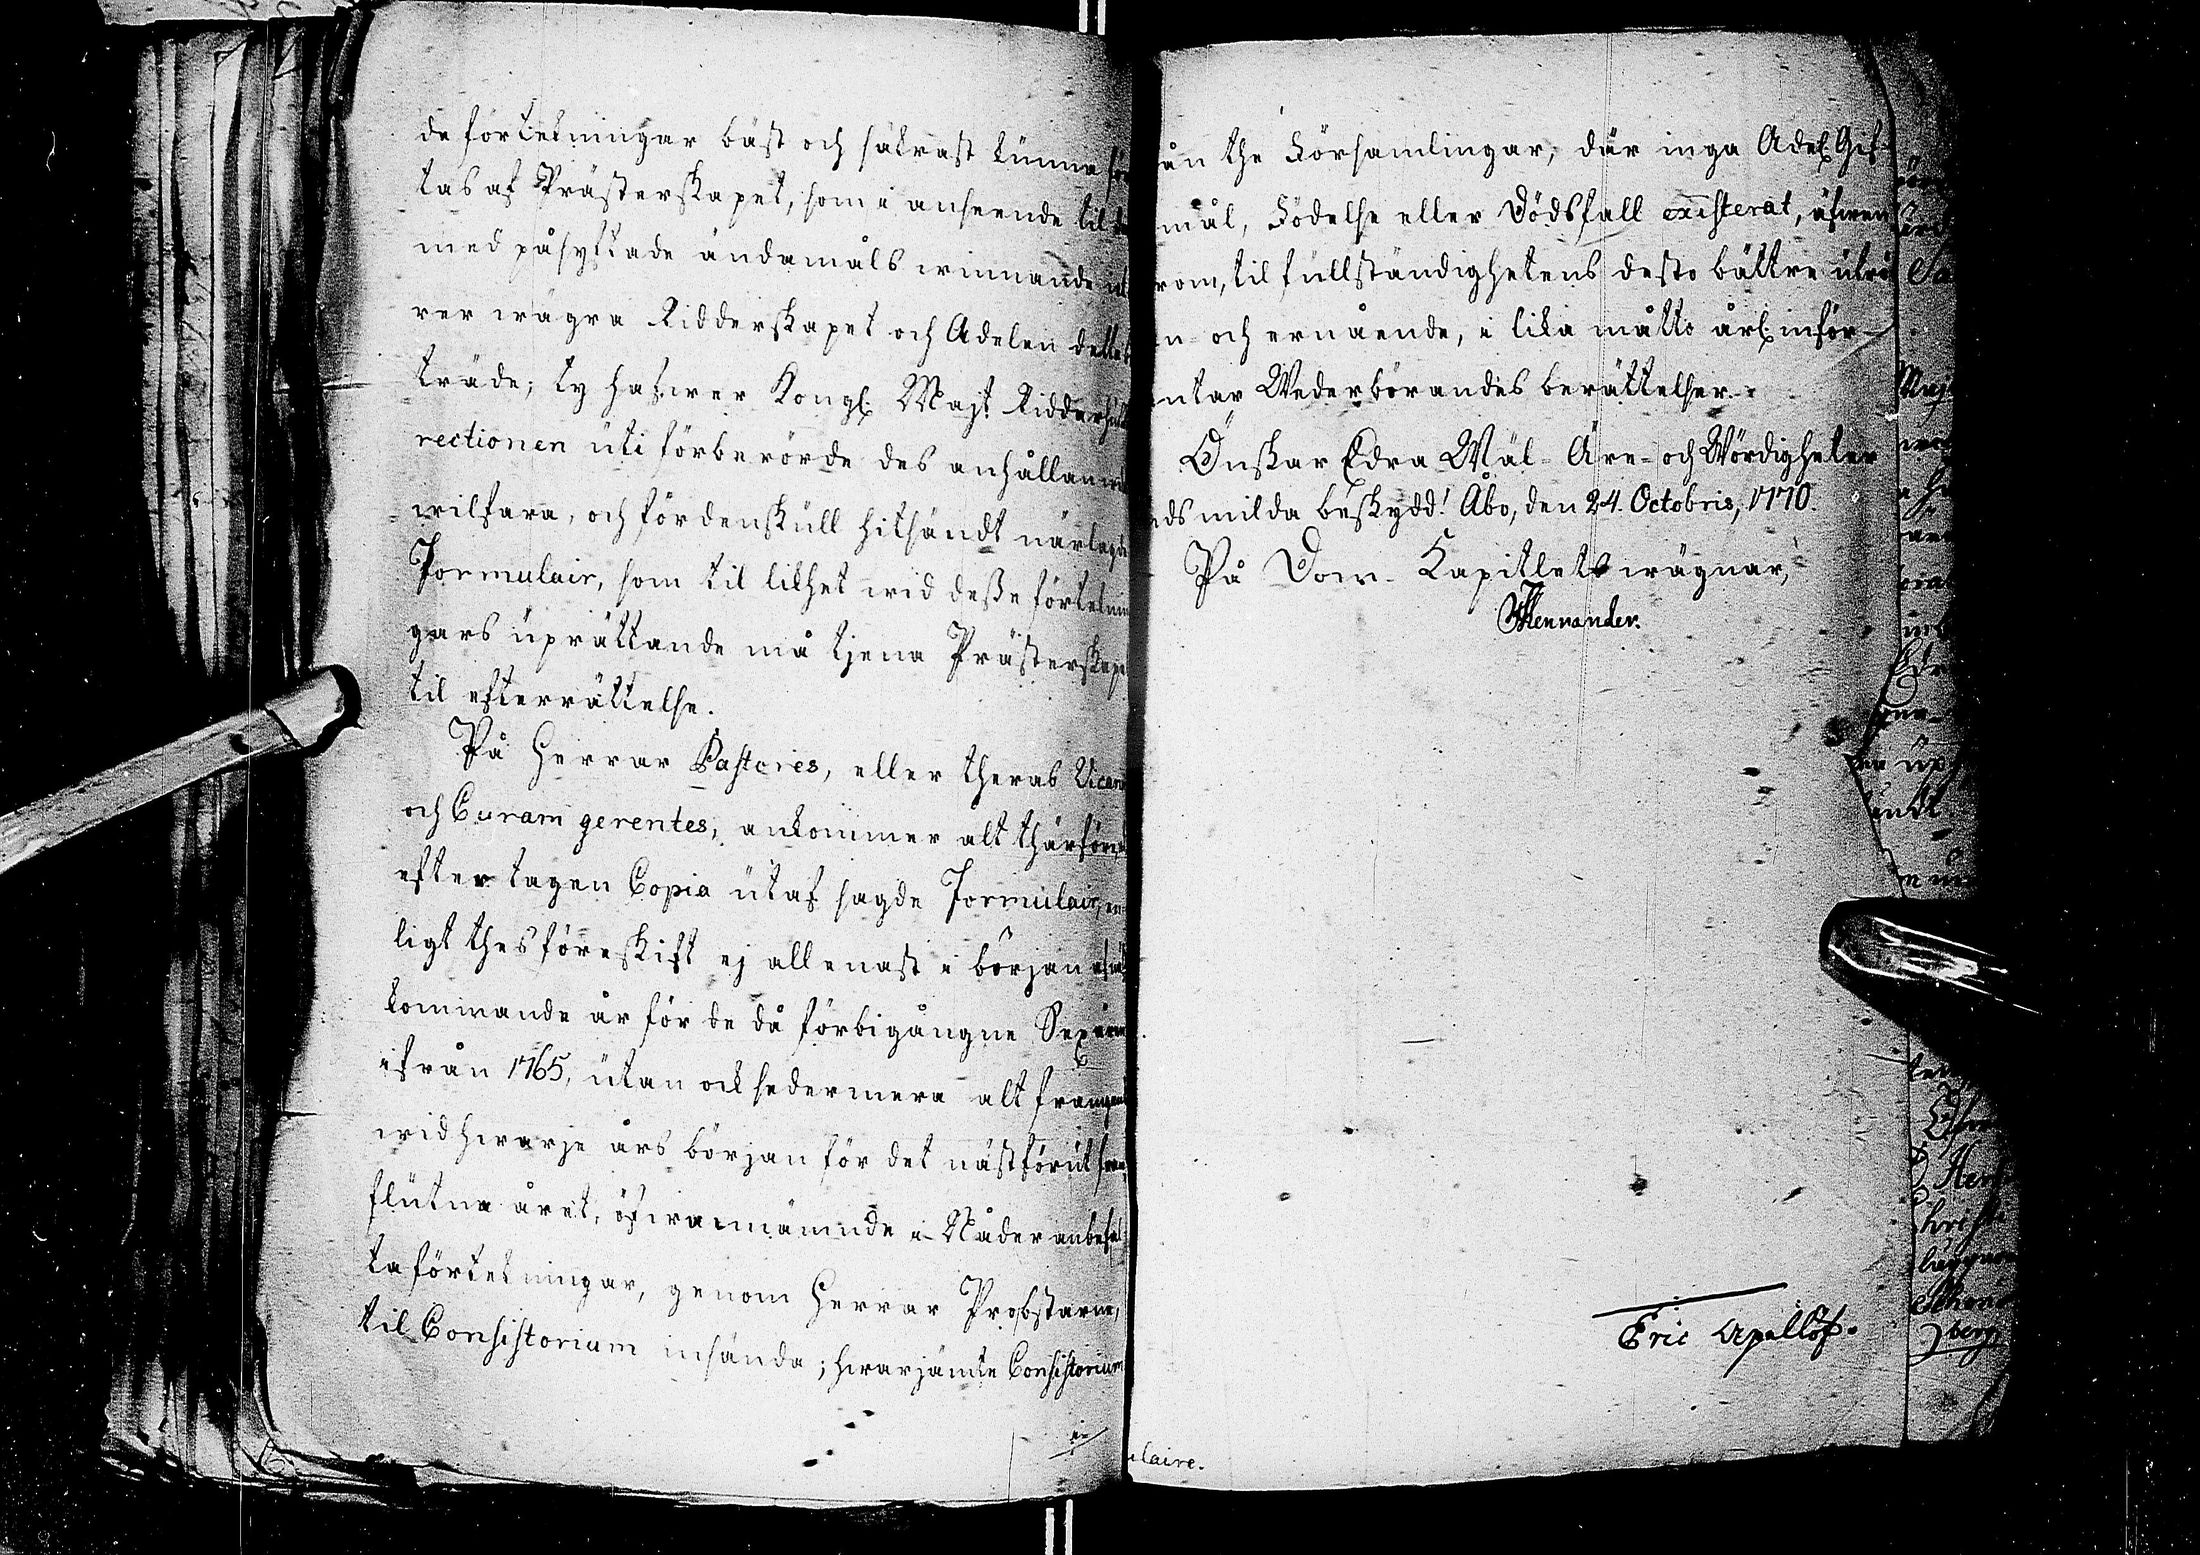 de förtekningar bäst och säkrast kunna för
tas af Prästerskapet, som i anseende til
med påsyftade ändamåls winnande
rer wägra Ridderskapet och Adelen detta
träde; ty hafwer Kongl. Majt Ridderhus
rectionen uti förberörde des anhållan
wilfara, och fördenskull hitsändt närlagde
Formulair, som til likhet wid desse förteknin
gars uprättande må tjena Prästerskape
til efterrättelse.
På Herrar Pastores, eller theras Vicari
och Curam gerentes, ankommer alt thärföre,
efter tagen Copia utaf sagde Formulair, en
ligt thes föreskift ej allenast i början af
kommande år för de då förbigångne Sex åren
ifrån 1765, utan ock sedermera alt framgent
wid hwarje års början för det nästförut fram
flutna året, öfwannämnde i Nåder anbefal
ta förtekningar, genom Herrar Probstarne,
til Consistorium insända; hwarjämte Consistorium
ån the Församlingar, där inga Adel. Gif
mål, Födelse eller Dödsfall existerat, äfwen
rom, til fullständighetens desto bättre utrö
n och ernående, i lika måtto årl. inför
ntar Wederbörandes berättelser.
Önskar Edra Wäl- Äre- och Wördigheter
ds milda beskydd! Åbo, den 24. Octobris, 1770.
På Dom-Kapitlets wägnar,
Mennander.
Eric Apellöf.
ulaire.